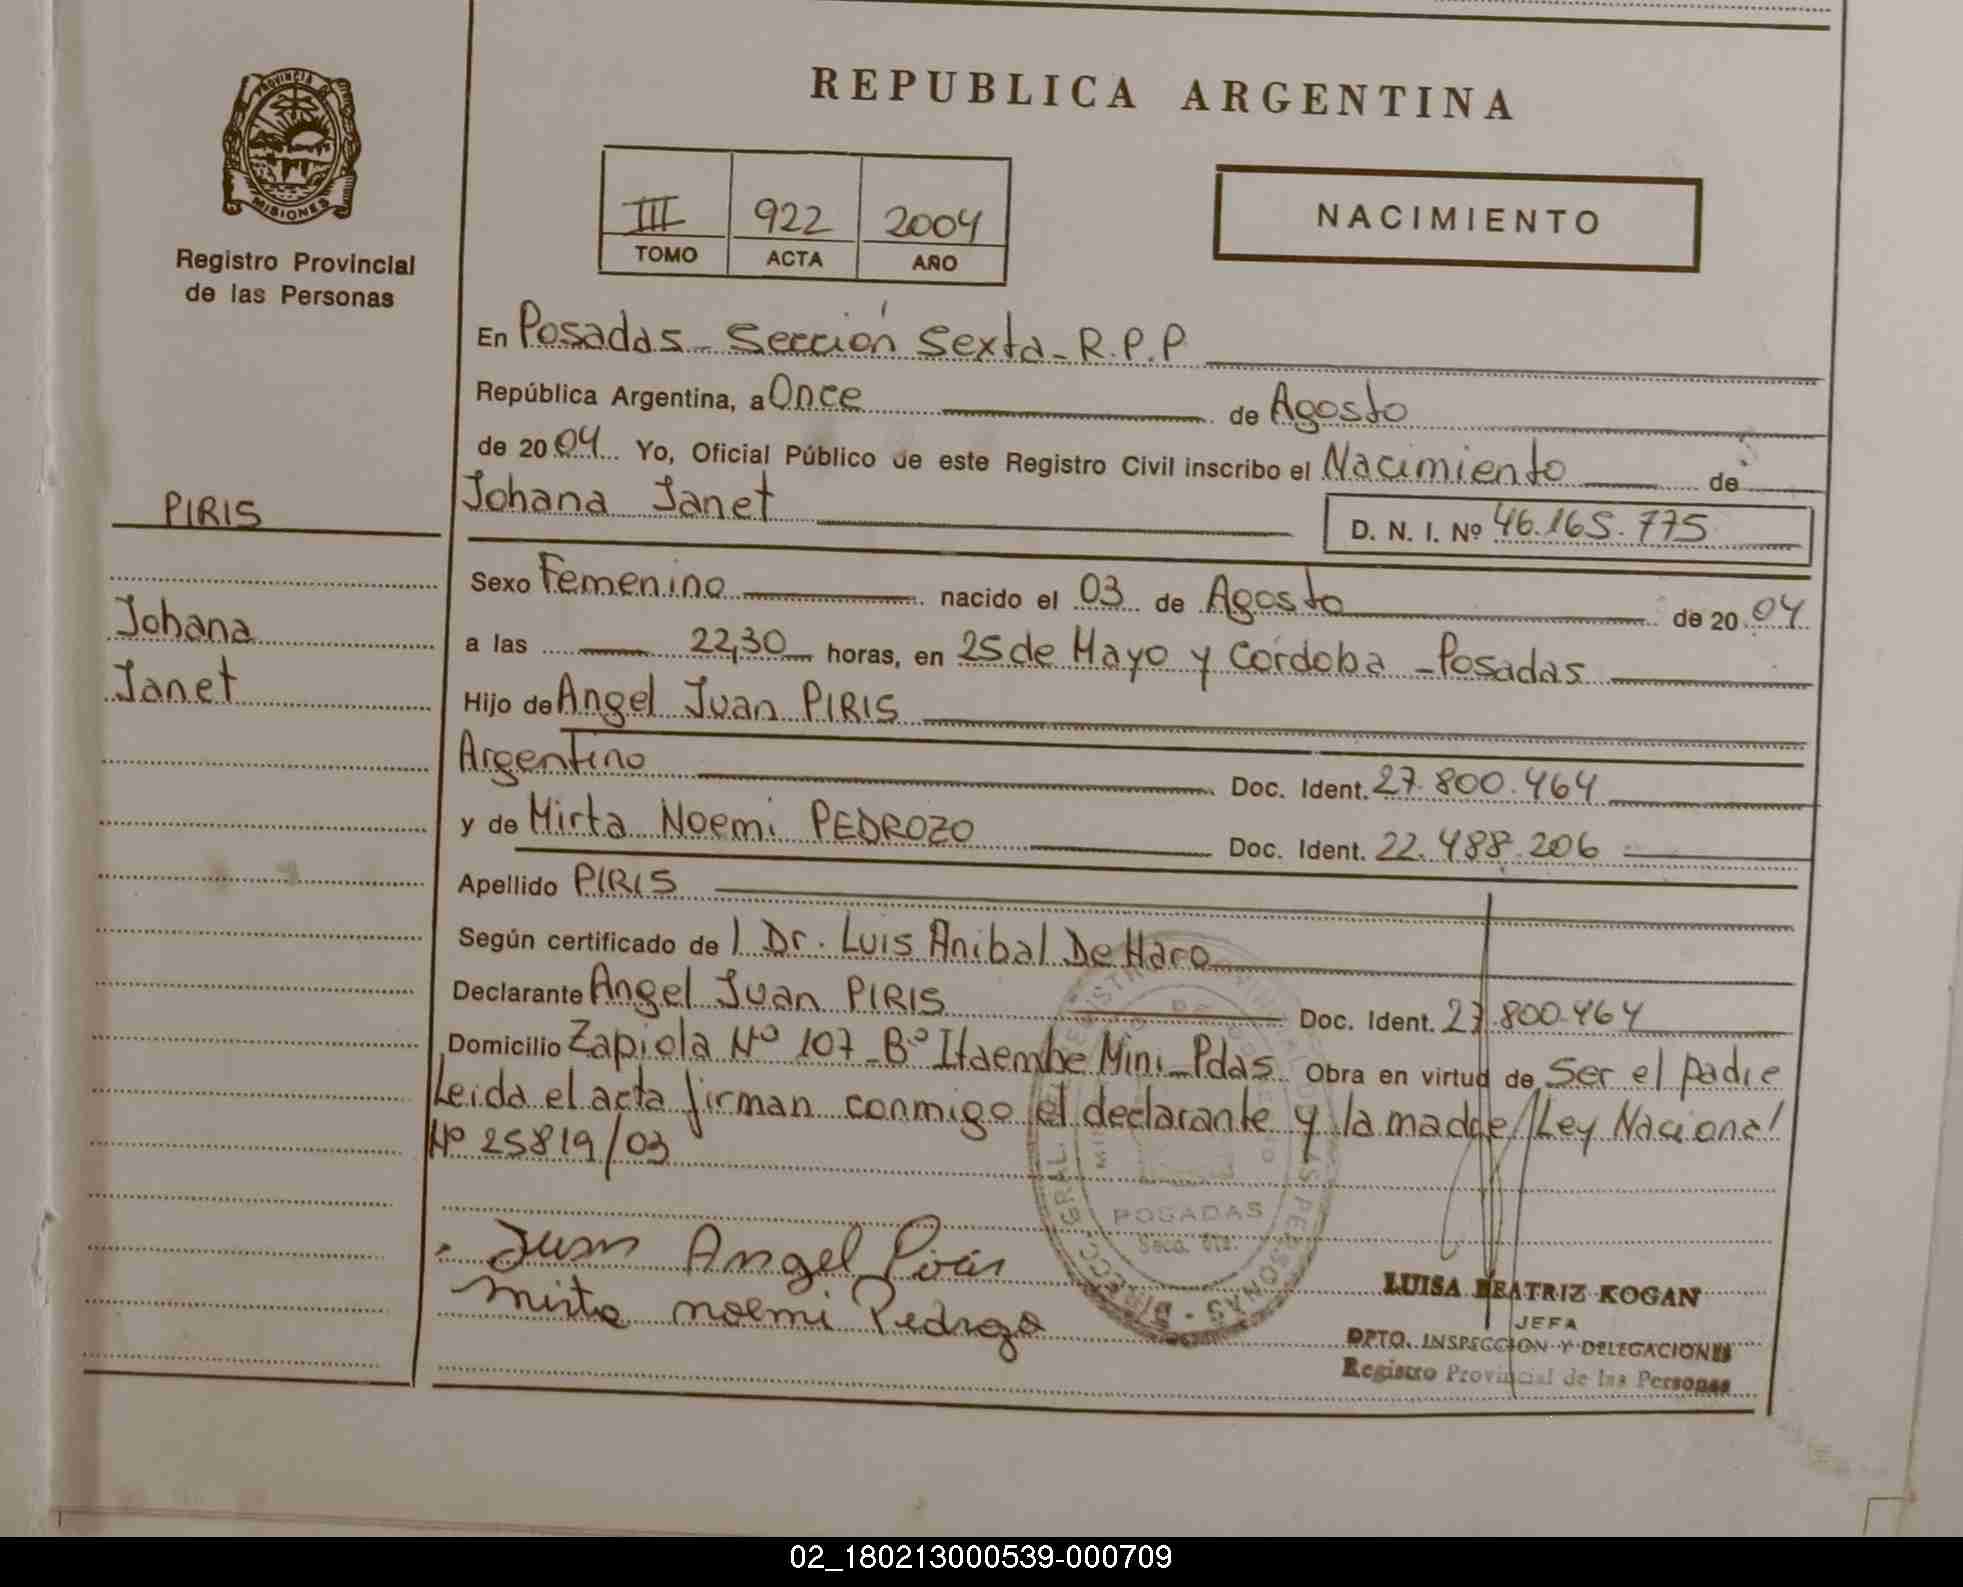 REPUBLICA ARGENTINA
PROVINCIA DE
MISIONES
Registro Provincial
de las Personas
III 922 2004
TOMO ACTA AÑO
NACIMIENTO
En Posadas - Sección Sexta - R.P.P
República Argentina, a Once de Agosto
de 2004 Yo, Oficial Público de este Registro Civil inscribo el Nacimiento de
PIRIS
Johana Janet D. N. I. Nº 46.165.775
Sexo Femenino nacido el 03 de Agosto de 2004
Johana
a las 22,30 horas, en 25 de Mayo y Córdoba - Posadas
Janet
Hijo de Angel Juan PIRIS
Argentino Doc. Ident. 27.800.464
y de Mirta Noemi PEDROZO Doc. Ident. 22.488.206
Apellido PIRIS
Según certificado de l Dr. Luis Anibal De Haro
Declarante Angel Juan PIRIS Doc. Ident. 27.800.464
Domicilio Zapiola Nº 107 - Bº Itaembe Mini - Pdas Obra en virtud de Ser el padre
Leida el acta firman conmigo el declarante y la madre//Ley Nacional
Nº 25819/03
Juan Angel Piris
Mirta noemi Pedrozo
POSADAS
LUISA BEATRIZ KOGAN
JEFA
DPTO. INSPECCION Y DELEGACIONES
Registro Provincial de las Personas
02_180213000539-000709